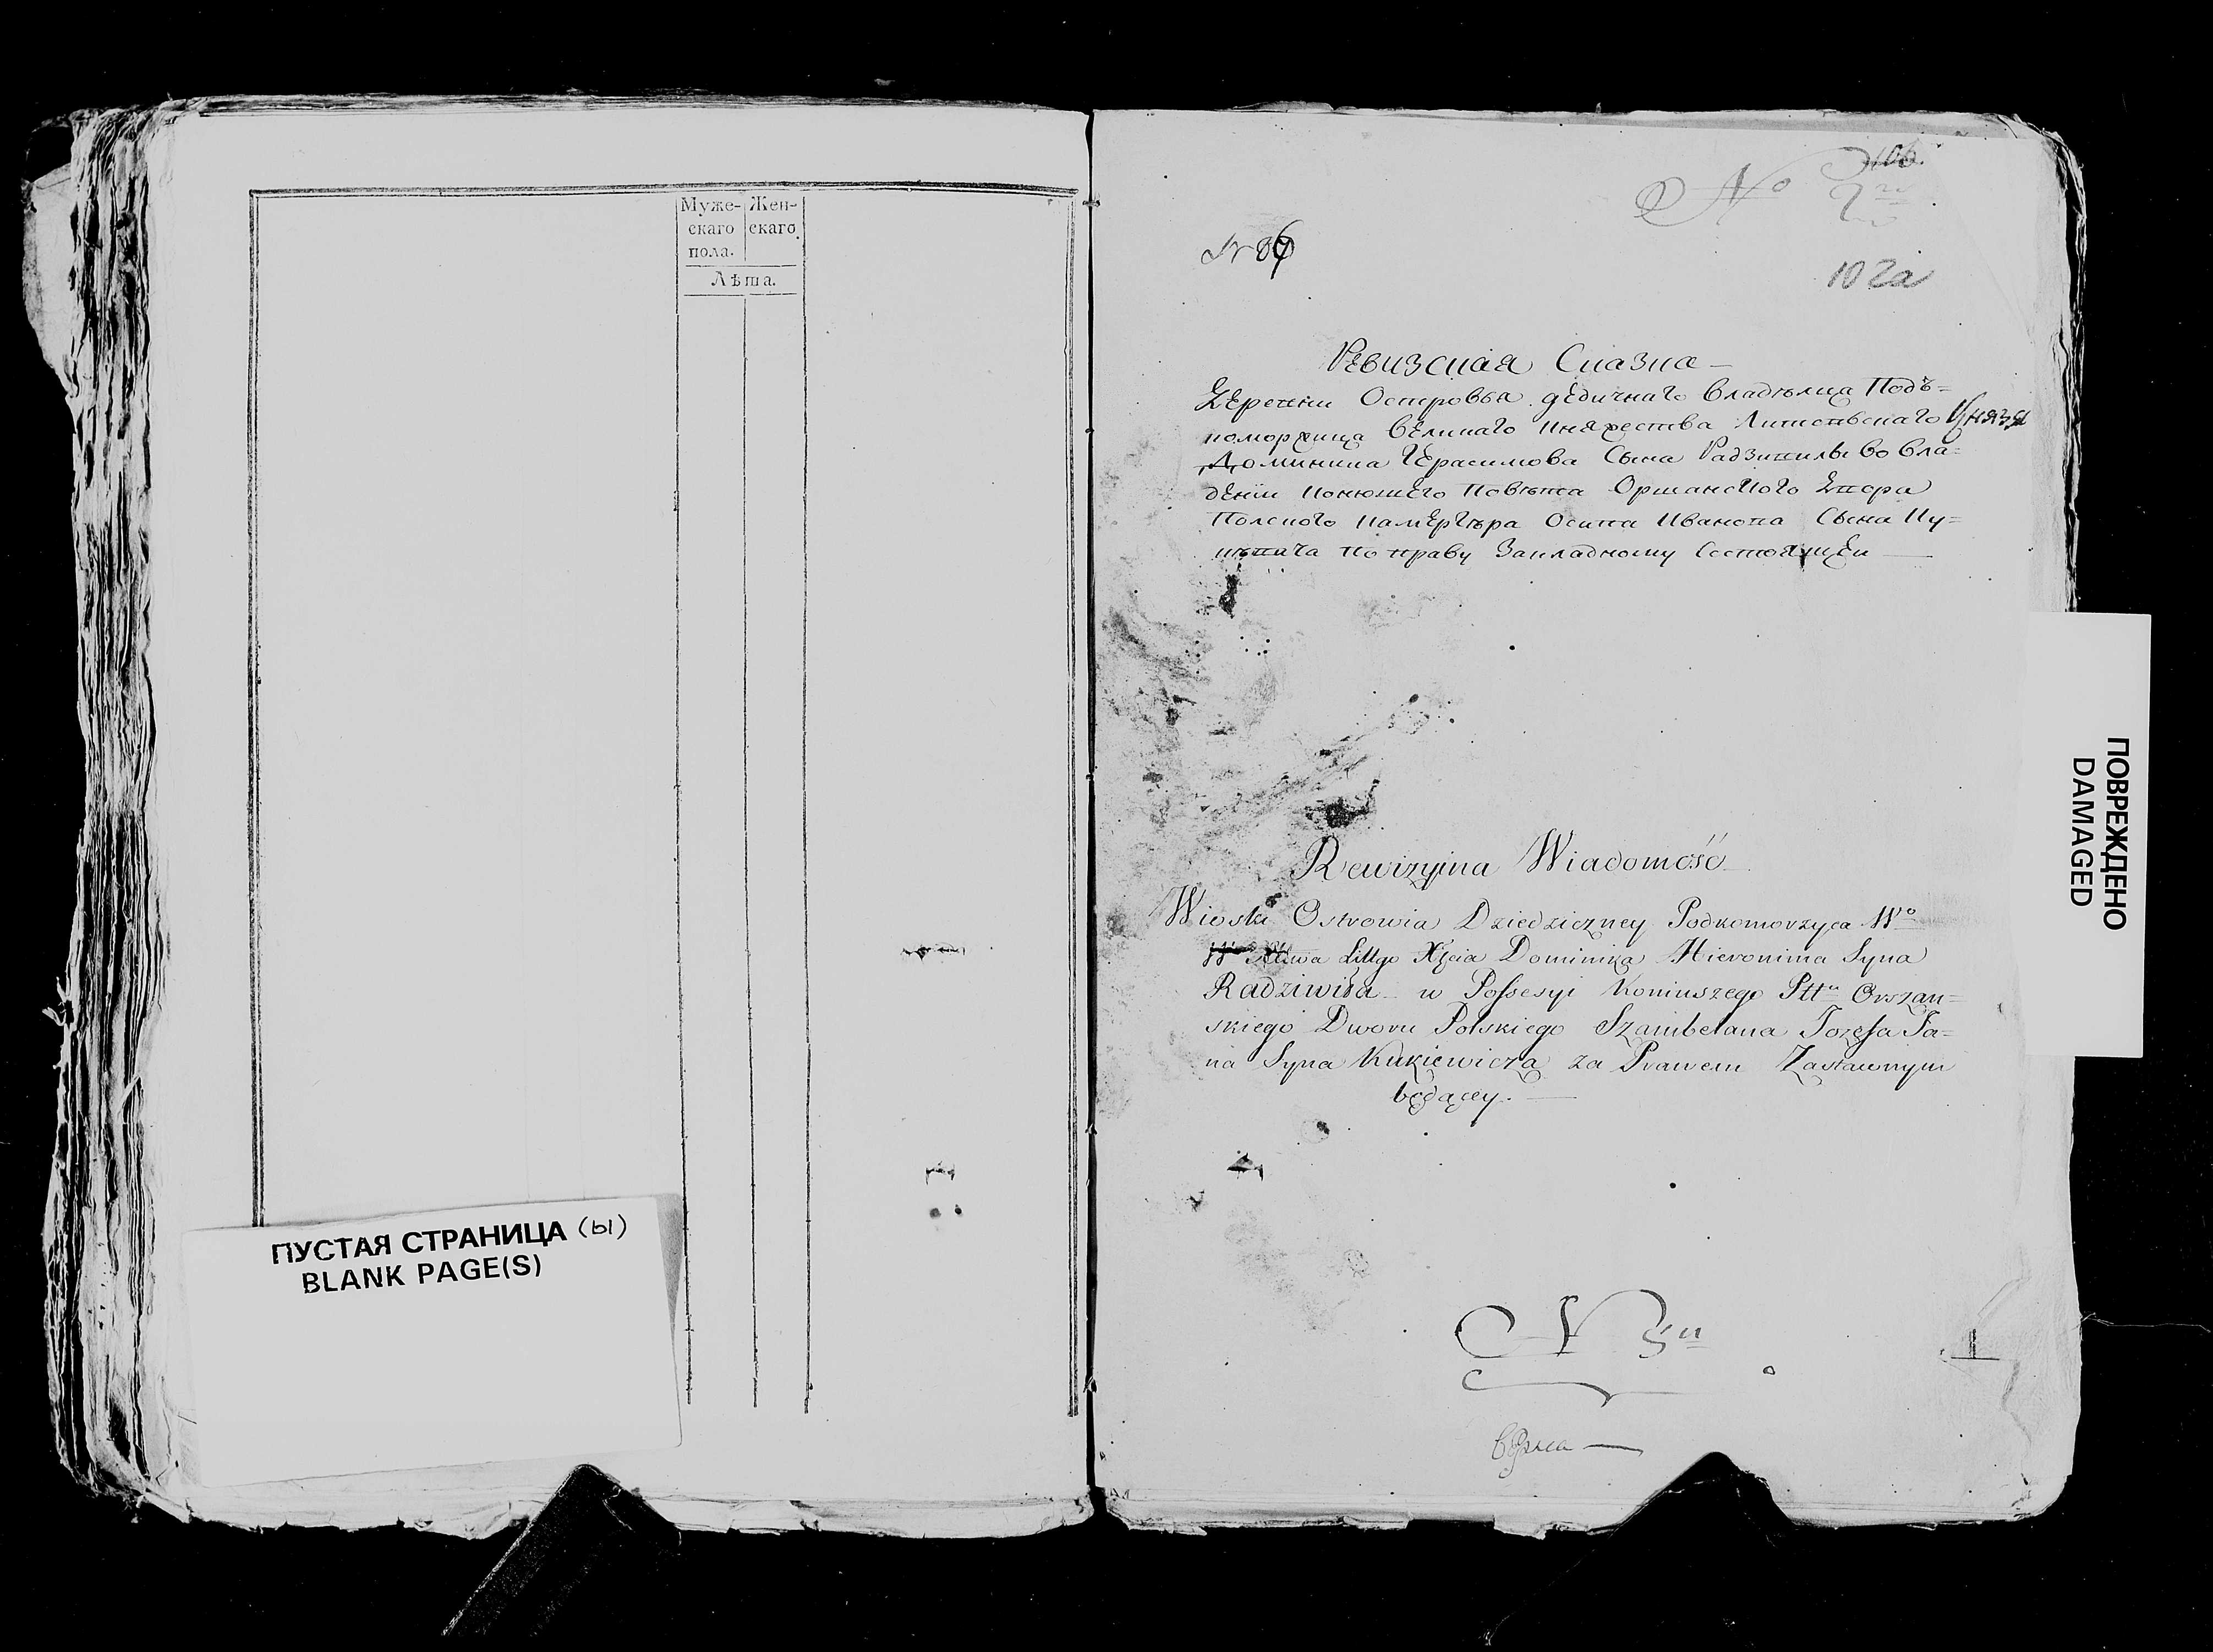 Муже-
скаго
пола.
Жен-
скаго.
Лѣта.
ПУСТАЯ СТРАНИЦА (ы)
BLANK PAGE(S)
106.
No
102a
Ревизская Сказка —
Деревни Островья дѣдичнаго владѣльца Подъ=
коморжица Великаго Княжества Литовскаго Князя
Доминика Герасимова Сына Радзивилъ во вла=
дѣніи конюшего Повѣта Оршанского Двора
Полского камергѣра Осипа Иванова Сына Ку=
кѣвича по праву Закладному Состоящей —
Rewizyina Wiadomość
Wioski Ostrowia Dziedziczney Podkomorzyca Wo
Littgo Xęcia Dominika Hieronima Syna
Radziwiła w Possesyi Koniuszego Pttu Orszań=
skiego Dworu Polskiego Szambelana Jozefa Ja=
na Syna Kukiewicza za Prawem Zastawnym
będącey. —
N 3
1
ПОВРЕЖДЕНО
DAMAGED